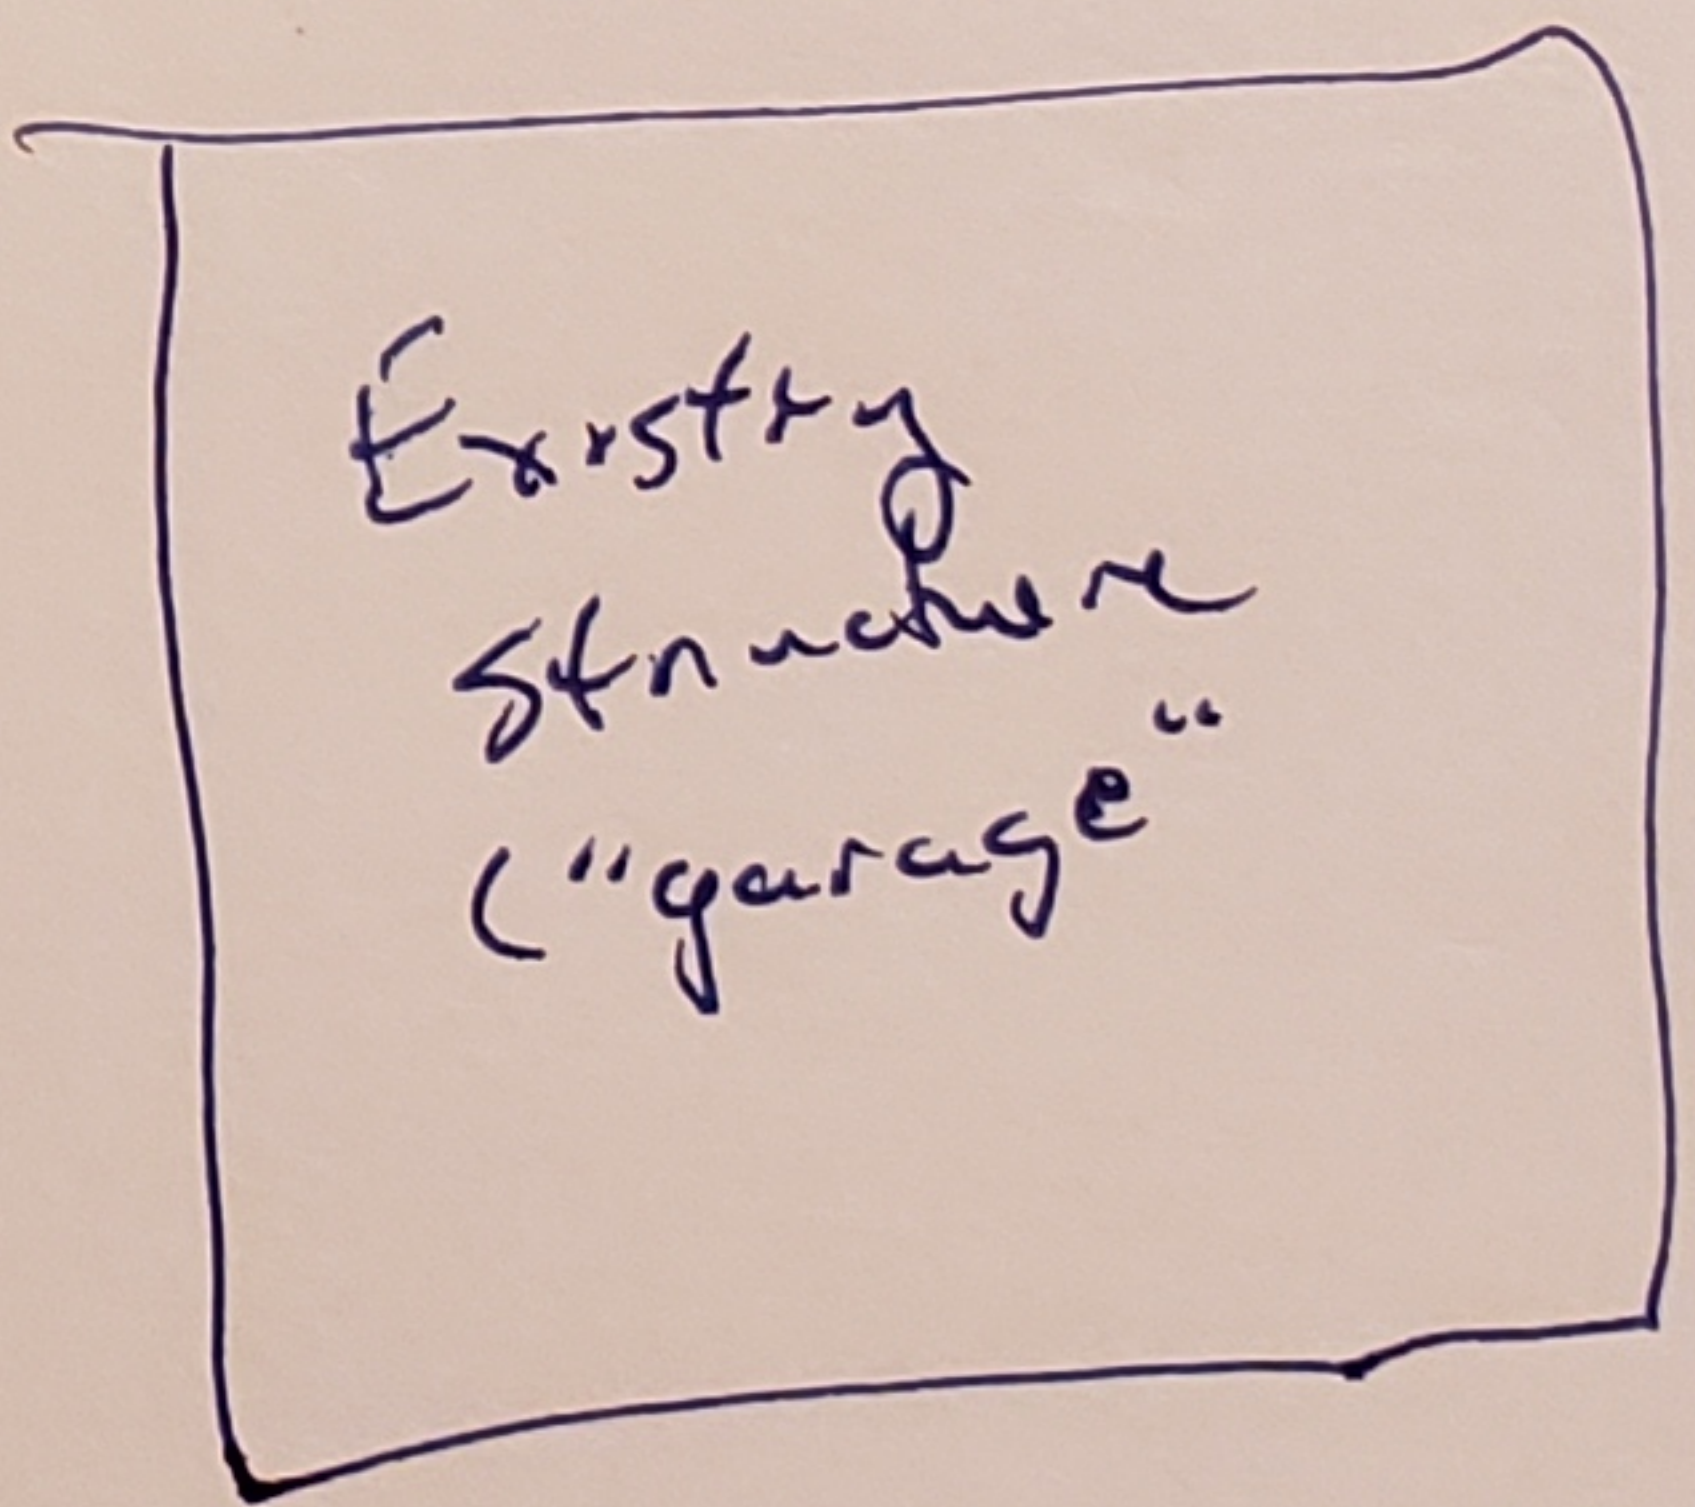 Existing
Structure
("garage"